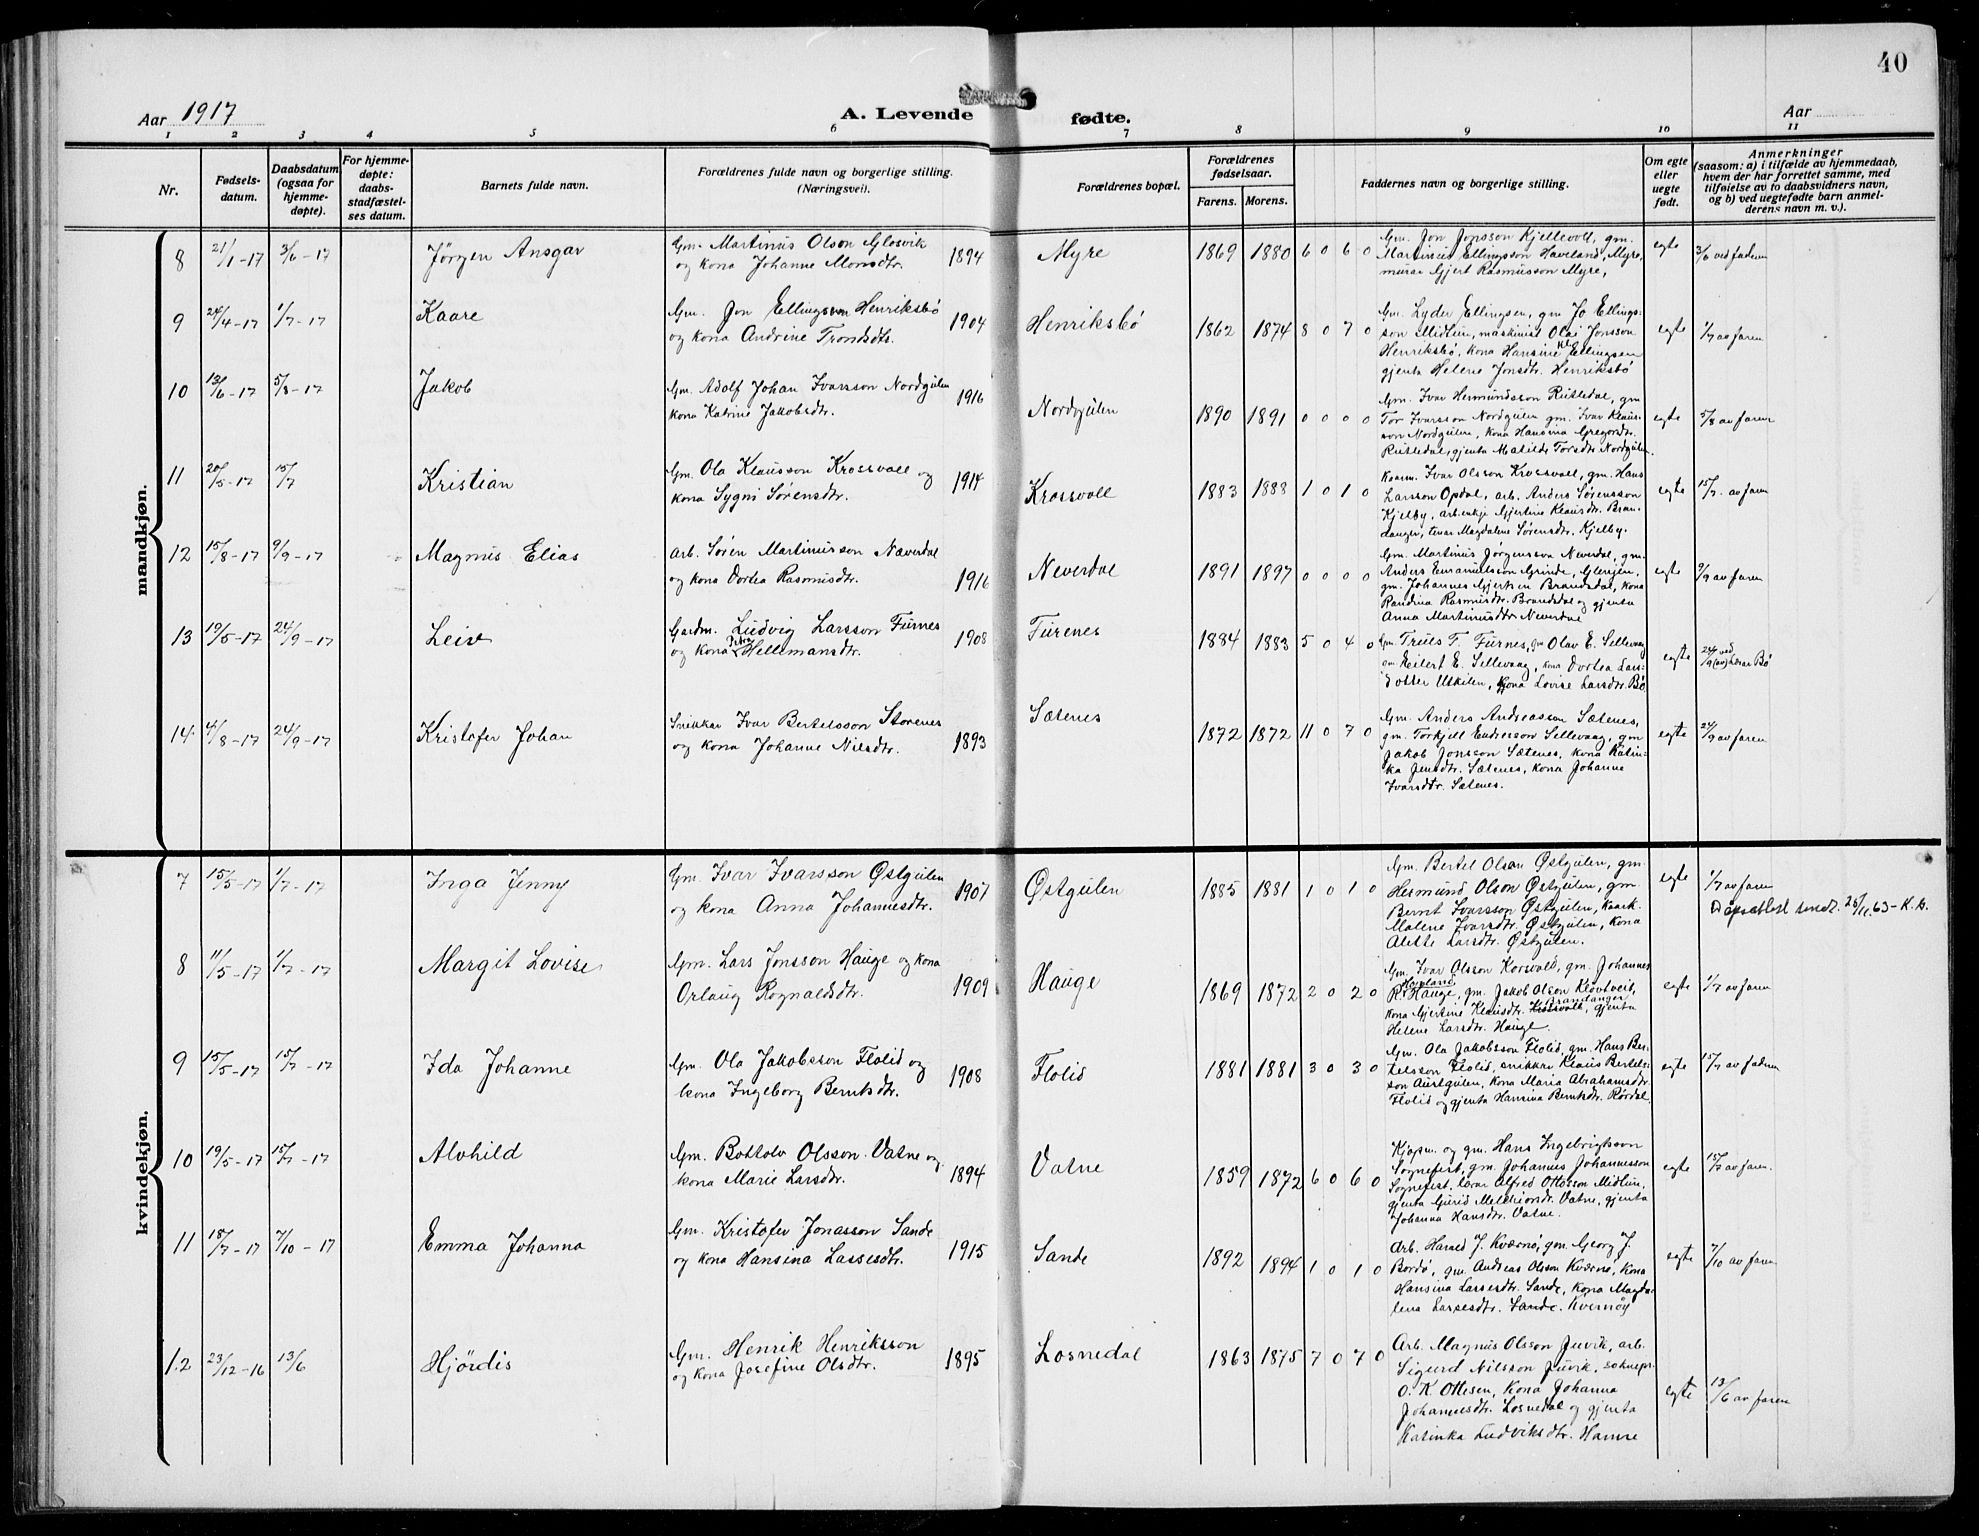 40
Aar 1917
A. Levende fødte.
Aar
1 2 3 4 5 6 7 8 9 10 11
Nr.
Fødsels-
datum.
Daabsdatum
(ogsaa for
hjemme-
døpte).
For hjemme-
døpte:
daabs-
stadfæstel-
ses datum.
Barnets fulde navn.
Forældrenes fulde navn og borgerlige stilling.
(Næringsvei).
Forældrenes bopæl.
Forældrenes
fødselsaar.
Farens. Morens.
Faddernes navn og borgerlige stilling.
Om egte
eller
uegte
født.
Anmerkninger
(saasom: a) i tilfælde av hjemmedaab,
hvem der har forrettet samme, med
tilføielse av to daabsvidners navn,
og b) ved uegtefødte barn anmel-
derens navn m. v.).
mandkjøn.
8 21/1-17 3/6-17 Jørgen Ansgar
Gm. Martinus Olson Glosvik
og kona Johanne Monsdtr. 1894
Myre 1869 1880 6 0 6 0
Gm. Jon Jonsson Kjellevoll, gm.
Martinius Ellingsson Haveland, Myre,
murar Gjert Rasmusson Myre,
egte 3/6 ved faderen
9 24/4-17 1/7-17 Kaare
Gm. Jon Ellingson Henriksbø
og kona Andrine Trondsdtr. 1904
Henriksbø 1862 1874 8 0 7 0
Gm. Lyder Ellingsen, gm Jo Ellings-
son Midtun, maskinist Olai Jonsson
Henriksbø, kona Hansine Ellingsen
gjenta Helene Jonsdtr. Henriksbø
egte 1/7 av faren
10 13/6-17 5/8-17 Jakob
Gm. Adolf Johan Ivarsson Nordgulen
kona Katrine Jakobsdtr. 1916
Nordgulen 1890 1891 0 0 0 0
Gm. Ivar Hermundsson Risledal, gm
Tor Ivarsson Nordgulen gm. Ivar Klaus-
son Nordgulen, kona Hansina Gregordtr.
Risledal, gjenta Matilde Torsdtr Nordgulen.
egte 5/8 av faren
11 20/5-17 15/7 Kristian
Gm. Ola Klausson Krossvoll og
kona Sygni Sørensdtr. 1914
Krossvoll 1883 1888 1 0 1 0
Kaarm. Ivar Olsson Krossvoll, gm. Hans
Larsson Opdal, arb. Anders Sørensson
Kjelby, arb.enkje Gjertine Klausdtr. Bran-
danger, tenar Magdalene Sørensdtr. Kjelby.
egte 15/7. av faren
12 15/8-17 9/9-17 Magnus Elias
Arb. Søren Martinusson Næverdal
og kona Dortea Rasmusdtr. 1916
Neverdal 1891 1897 0 0 0 0
Gm. Martinus Jørgensson Neverdal, gm.
Anders Emanuelsson Grinde, Glenjen,
gm. Johannes Gjertsen Brandsdal, kona
Randina Rasmusdtr. Brandsdal og gjenta
Anna Martinusdtr Neverdal
egte 9/9 av faren
13 19/5-17 24/9-17 Leiv
Gardm. Ludvig Larsson Furnes
og kona Petra Hellemansdtr. 1908
Furenes 1884 1883 5 0 4 0
Gm. Truls T. Furnes, gm Olav E. Sellevaag
gm. Eilert E. Sellevaag, kona Dortea Lars-
dotter Utkilen, kona Lovise Larsdtr. Bø
egte 24/9 ved (av) Lærar Bø
14. 4/8-17 24/9-17 Kristofer Johan
Snikkar Ivar Bertelsson Storenes
og kona Johanne Nilsdtr. 1893
Sætenes 1872 1872 11 0 7 0
Gm. Anders Andreasson Sætenes,
gm. Torkjell Endresson Sellevaag, gm
Jakob Jonsson Sætenes, kona Katin-
ka Jensdtr. Sætenes, kona Johanne
Ivarsdtr. Sætenes.
egte 24/9 av faren
kvindekjøn.
7 15/5-17 1/7-17 Inga Jenny
Gm. Ivar Ivarsson Østgulen
og kona Anna Johannesdtr. 1907
Østgulen 1885 1881 1 0 1 0
Gm. Bertel Olson Østgulen, gm.
Hermund Olson Østgulen, gm.
Bernt Ivarsson Østgulen, kaark.
Malene Ivarsdtr. Østgulen, kona
Alette Larsdtr. Østgulen.
egte 1/7 av faren
Dåpsattest sendt. 25/11.63 - K. B.
8 11/5-17 1/7-17 Margit Lovise
Gm. Lars Jonsson Hauge og kona
Orlaug Rognaldsdtr. 1909
Hauge 1869 1872 2 0 2 0
Gm. Ivar Olsson Korsvold, gm. Johannes
R. Hauge, gm. Jakob Olson Kløvtveit,
kona Gjertine Klausdtr. Krossvoll Brandanger, gjenta
Helene Larsdtr. Hauge.
egte 1/7 av faren
9 15/5-17 15/7-17 Ida Johanne
Gm. Ola Jakobsson Flolid og
kona Ingeborg Berntsdtr. 1908
Flolid 1881 1881 3 0 3 0
Gm. Ola Jakobsson Flolid, gm. Hans Ber-
telsson Flolid, snikkar Klaus Bertels-
son Austgulen, kona Maria Abrahamsdtr.
Flolid og gjenta Hansina Berntsdtr. Rørdal.
egte 15/7 av faderen
10 19/5-17 15/7-17 Alvhild
Gm. Bottolv Olsson Vatne og
kona Marie Larsdtr. 1894
Vatne 1859 1872 6 0 6 0
Kjøpm. og gm. Hans Ingebrigtsson
Sognefest, gm. Johannes Johannesson
Sognefest, lærar Alfred Ottesson Midtun,
gjenta Gurid Melchiordtr. Vatne, gjenta
Johanna Hansdtr. Vatne.
egte 15/7 av faren.
11 18/7-17 7/10-17 Emma Johanna
Gm. Kristofer Jonasson Sande
og kona Hansina Lassesdtr. 1915
Sande 1892 1894 1 0 1 0
Arb. Harald J. Kværnø, gm. Georg J.
Bordø, gm. Andreas Olson Kværnø, kona
Hansina Larsesdtr. Sande, kona Magda-
lena Larsesdtr. Sande. Kvernøy
egte 7/10 av faren
12 23/12-16 13/6 Hjørdis
Gm. Henrik Henriksson
og kona Josefine Olsdtr. 1895
Losnedal 1863 1875 7 0 7 0
Arb. Magnus Olsson Juvik, arb.
Sigurd Nilsson Juvik, soknepr.
O. K. Ottesen, kona Johanna
Johannesdtr. Losnedal og gjenta
Katinka Ludviksdtr. Hamre
egte 13/6 av faren